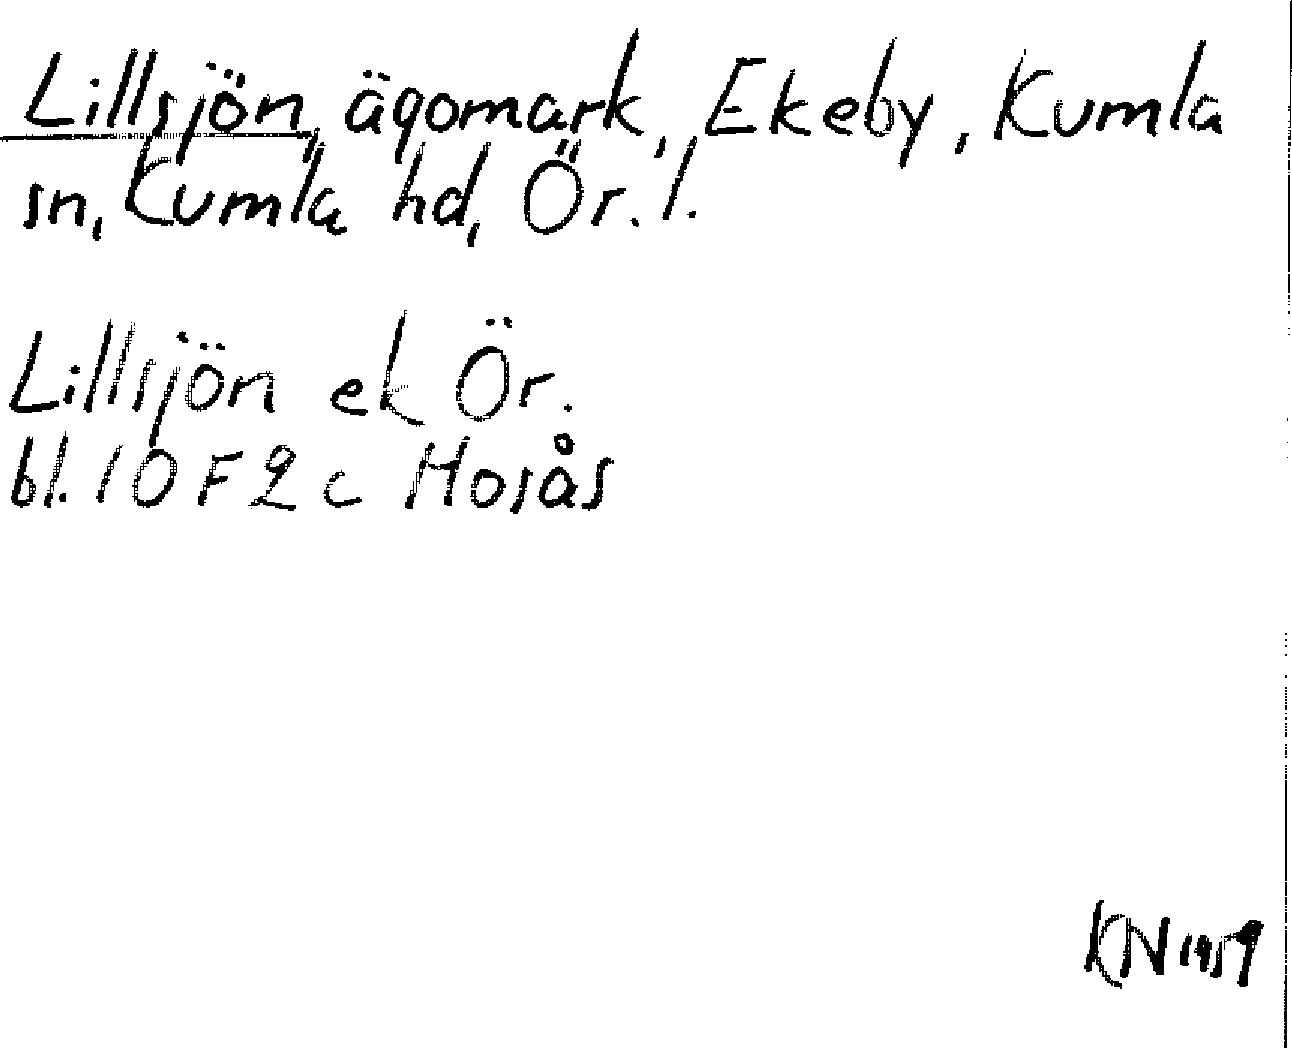 Lillsjön, ägomark, Ekeby, Kumla
sn, Kumla hd, Ör. l.
Lillsjön ek Ör.
bl. 10 F 2 c Mosås
KN 1959